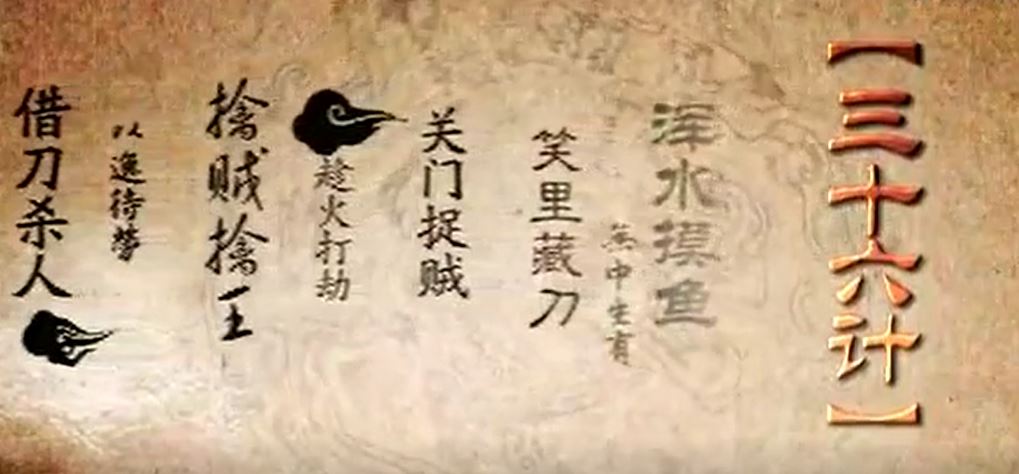 【三十六计】
浑水摸鱼
無中生有
笑里藏刀
关门捉贼
趁火打劫
擒贼擒王
以逸待劳
借刀杀人